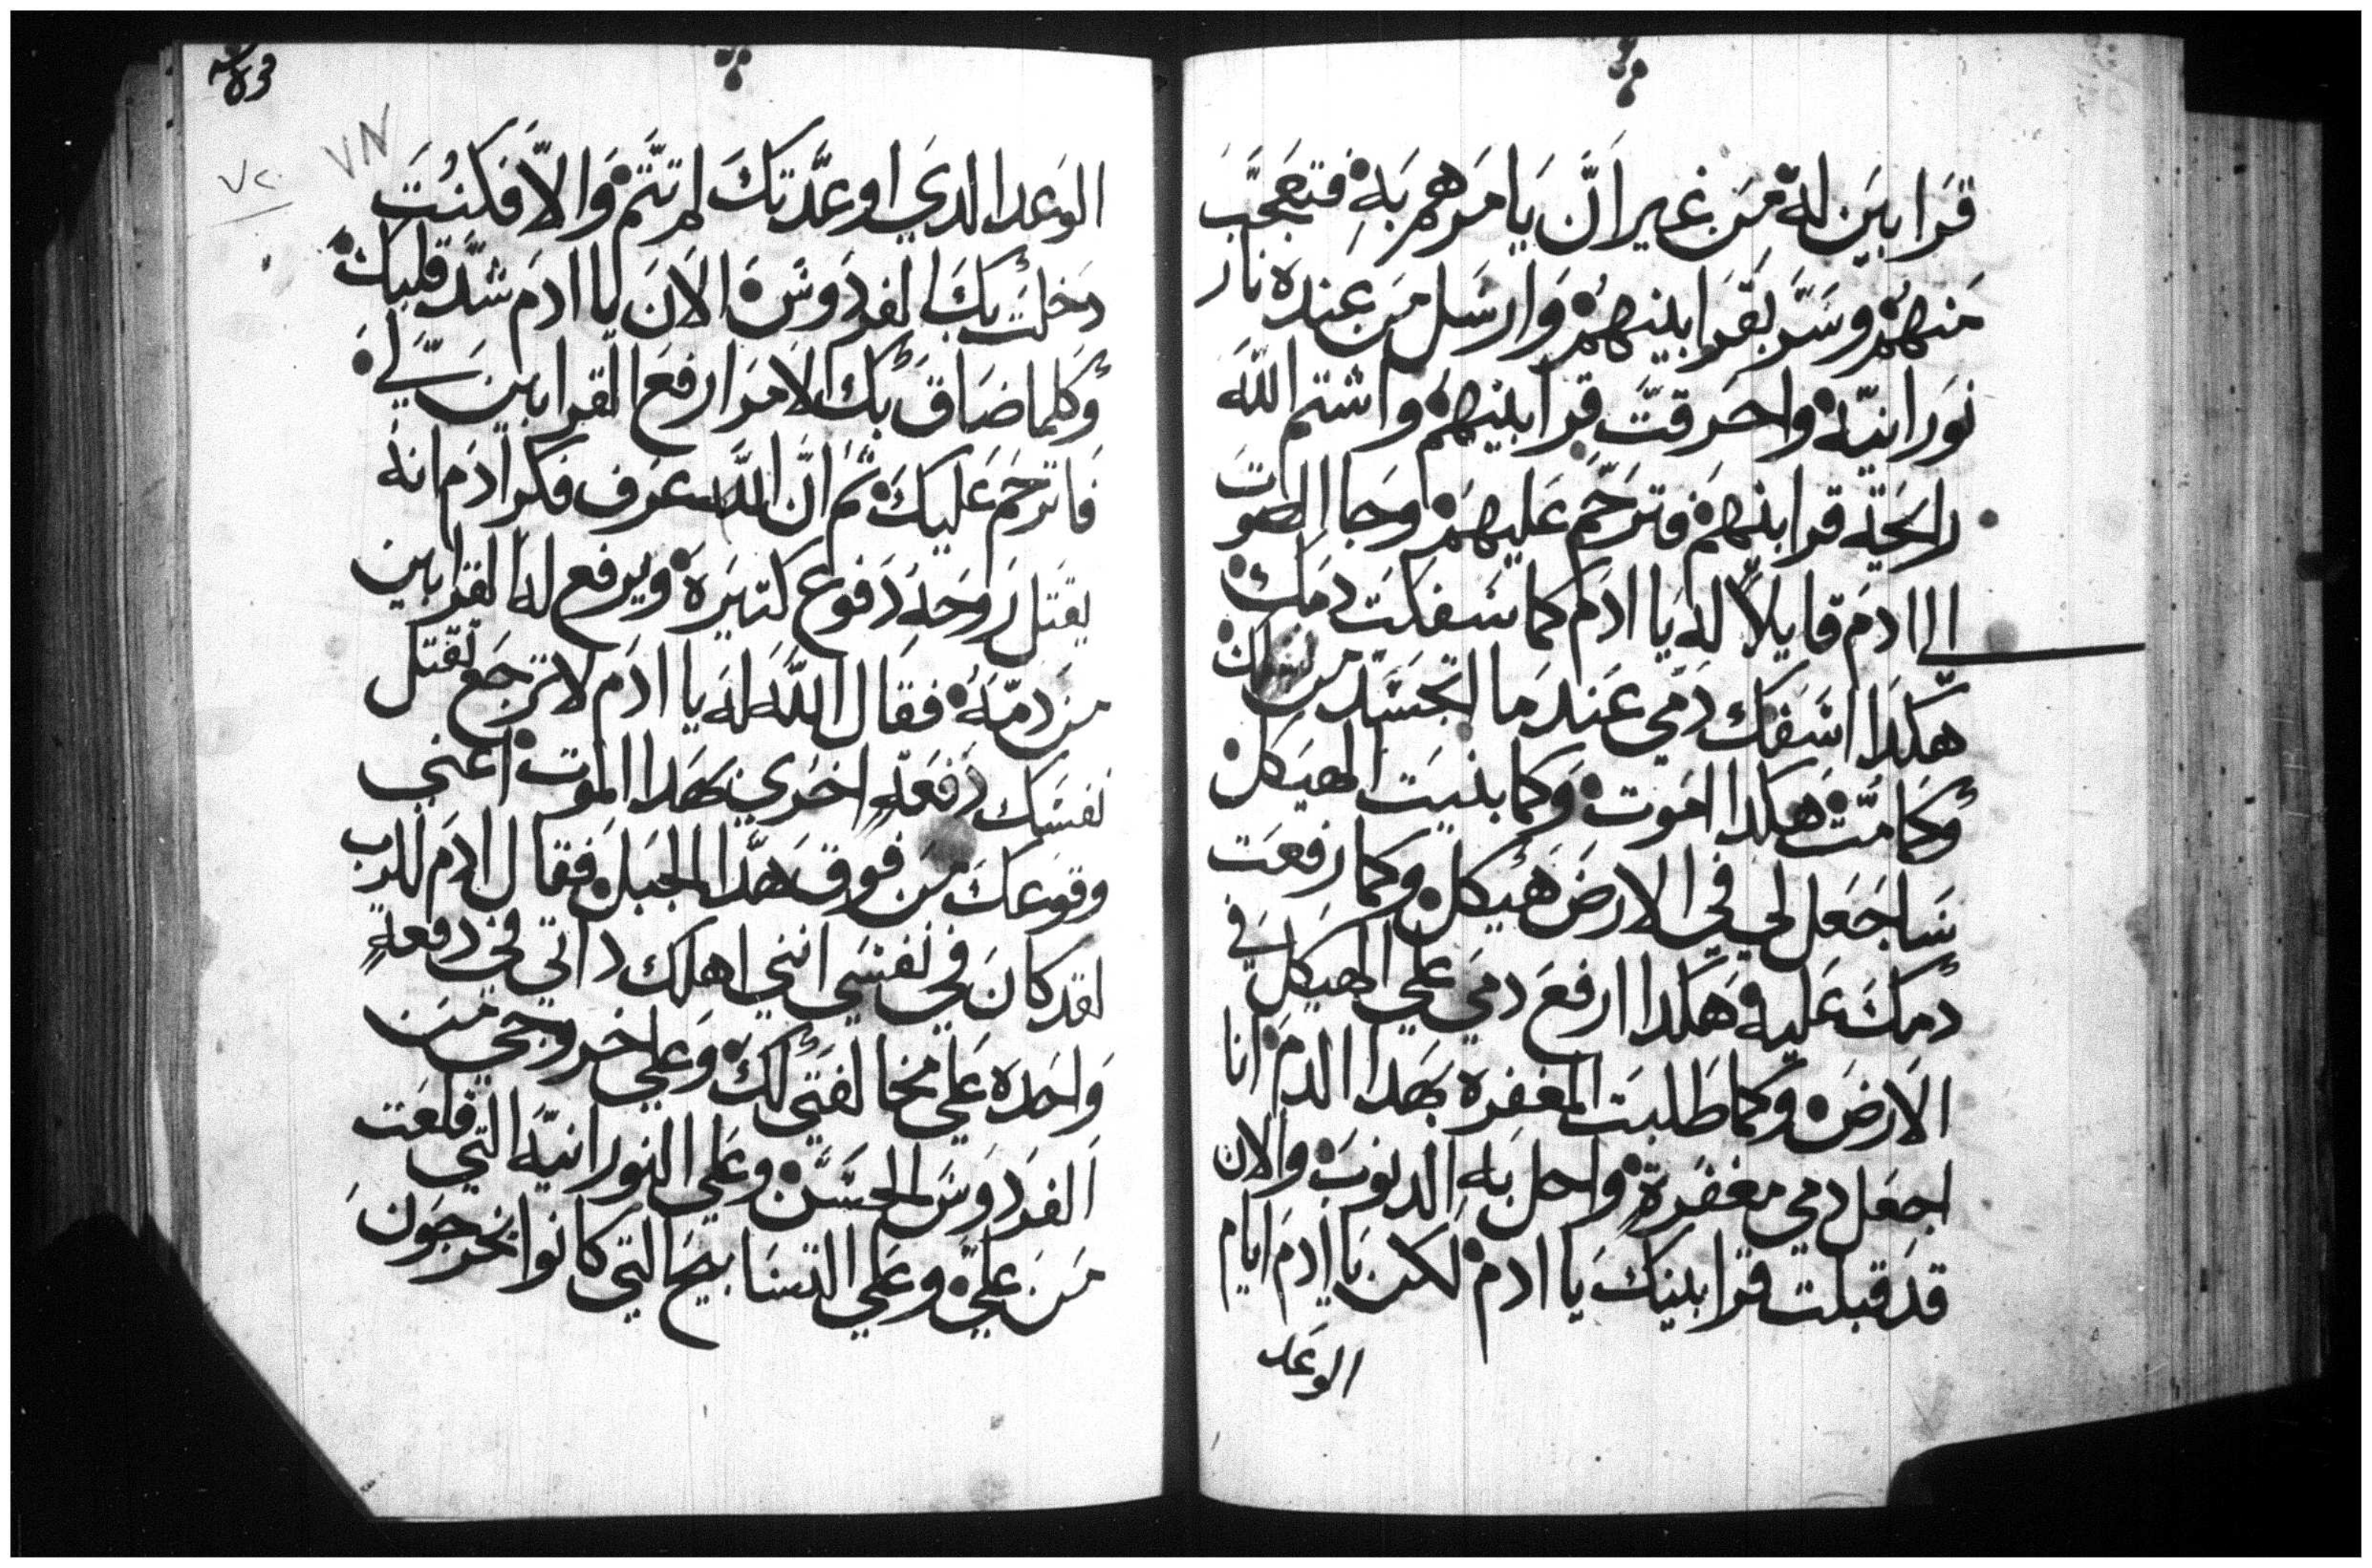 قرابين له من غير ان يامرهم به فتعجب
منهم وسر بقرابينهم وارسل من عنده نار
نورانيه واحرقت قرابينهم واشتم الله
رايحة قرابنهم وترحم عليهم وجا الصوت
الي ادم قايلاً له يا ادم كما سفكت دمك
هكدا اسفك دمي عندما اتجسد من
وكما مت هكدا اموت وكما بنيت الهيكل
ساجعل لي في الارض هيكل وكما رفعت
دمك عليه هكدا ارفع دمي علي الهيكل في
الارض وكما طلبت المغفره بهدا الدم انا
اجعل دمي مغفرةٍ واحل به الدنوب والان
قد قبلت قرابينك يا ادم لكن يا ادم ايام
الوعد
الوعد الدي اوعدتك لم تتم والا فكنت
دخلت بك الفردوس الان يا ادم شد قلبك
وكلما ضاق بك الامر ارفع القرابين لي
فاترحم عليك ثم ان الله عرف فكر ادم انه
يقتل روحه دفوع كتيره ويرفع له القرابين
من دمه فقال الله له يا ادم لا ترجع تقتل
نفسك دفعةٍ اخري بهدا الموت اعني
وقوعك من فوق هدا الجبل فقال ادم للرب
لقد كان في نفسي انني اهلك داتي في دفعةٍ
واحده علي مخالفتي لك وعلي خروجي من
الفردوس الحسن وعلي النورانيه التي قلعت
من علي وعلي التسابيح التي كانوا يخرجون